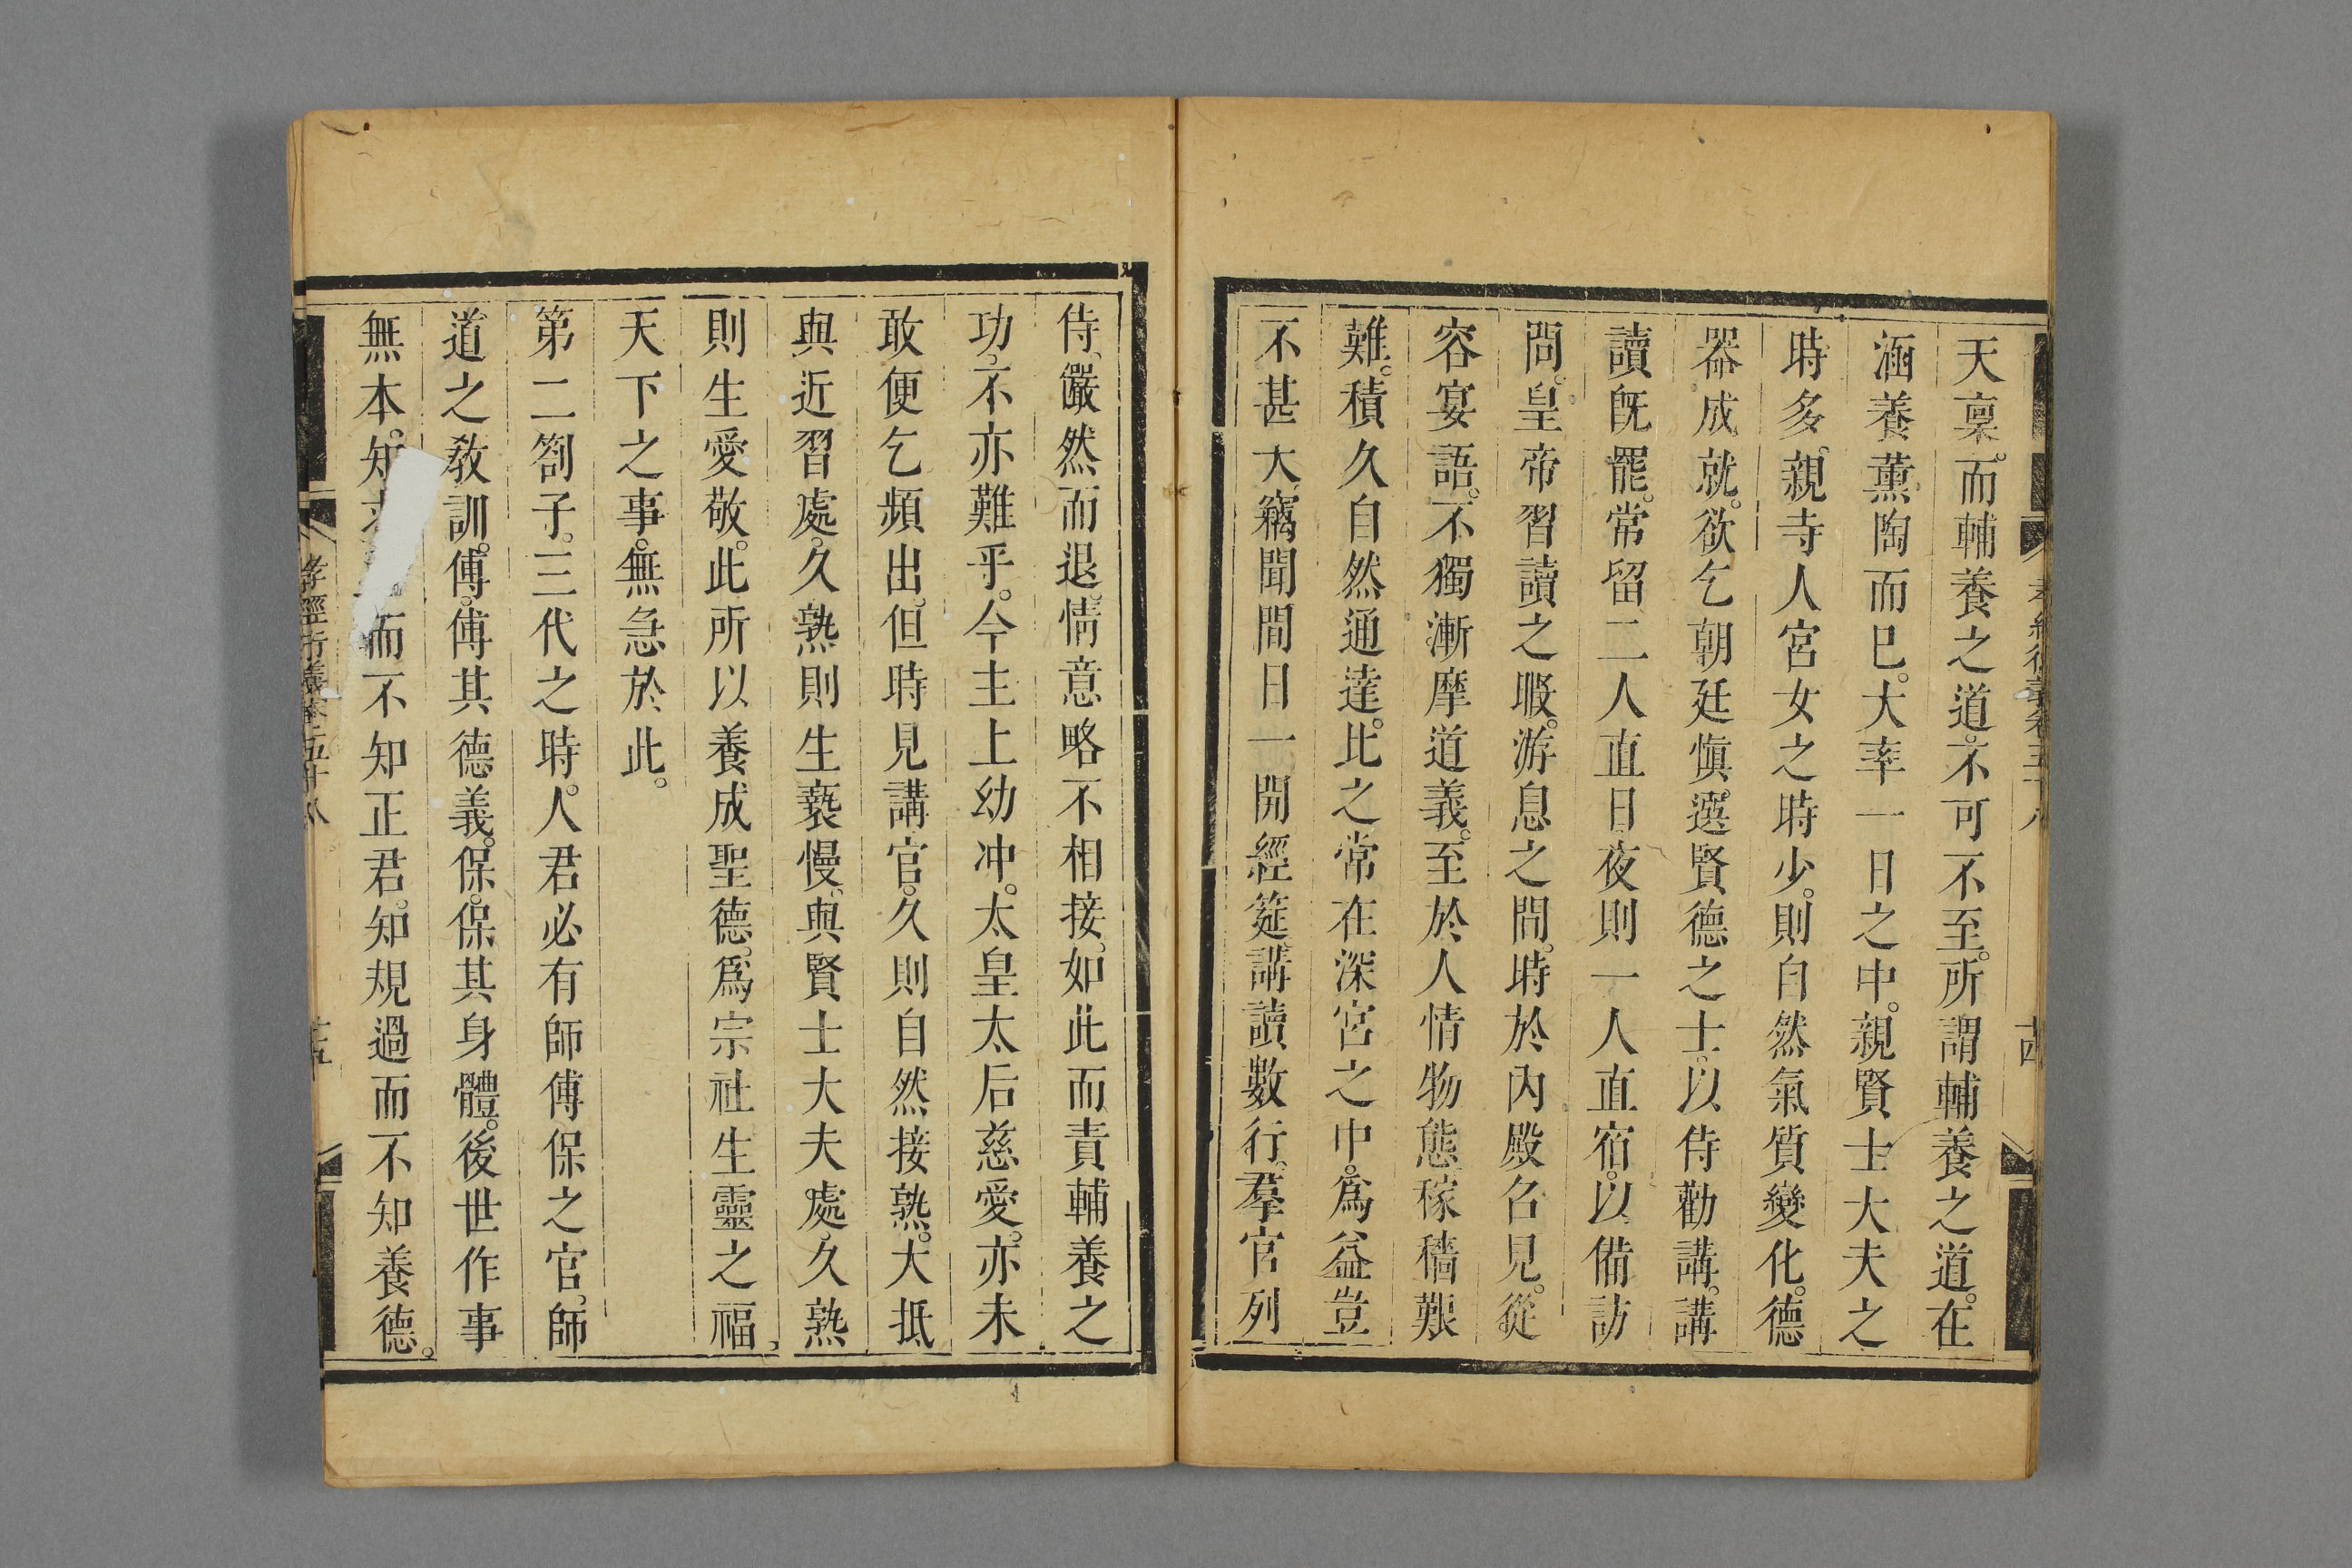 天稟。而輔養之道。不可不至。所謂輔養之道。在
涵養薫陶而已。大率一日之中。親賢士大夫之
時多。親寺人宮女之時少。則自然氣質變化。德
器成就。欲乞朝廷慎選賢德之士。以侍勸講。講
讀既罷。常留二人直日。夜則一人直宿。以備訪
問。皇帝習讀之暇。游息之間。時於內殿召見。從
容宴語。不獨漸摩道義。至於人情物態稼穡艱
難。積久自然通達。比之常在深宮之中。為益豈
不甚大竊聞間日一開經筵講讀數行。羣官列
侍。儼然而退。情意略不相接。如此而責輔養之
功。不亦難乎。今主上幼冲。太皇太后慈愛。亦未
敢便乞頻出。但時見講官。久則自然接熟。大抵
與近習處。久熟則生褻慢。與賢士大夫處。久熟
則生愛敬。此所以養成聖德。為宗社生靈之福。
天下之事。無急於此。
第二劄子。三代之時。人君必有師傅保之官。師
道之教訓。傅。傅其德義。保。保其身體。後世作事
無本。知而不知正君。知規過而不知養德。
孝經衍義卷五十八